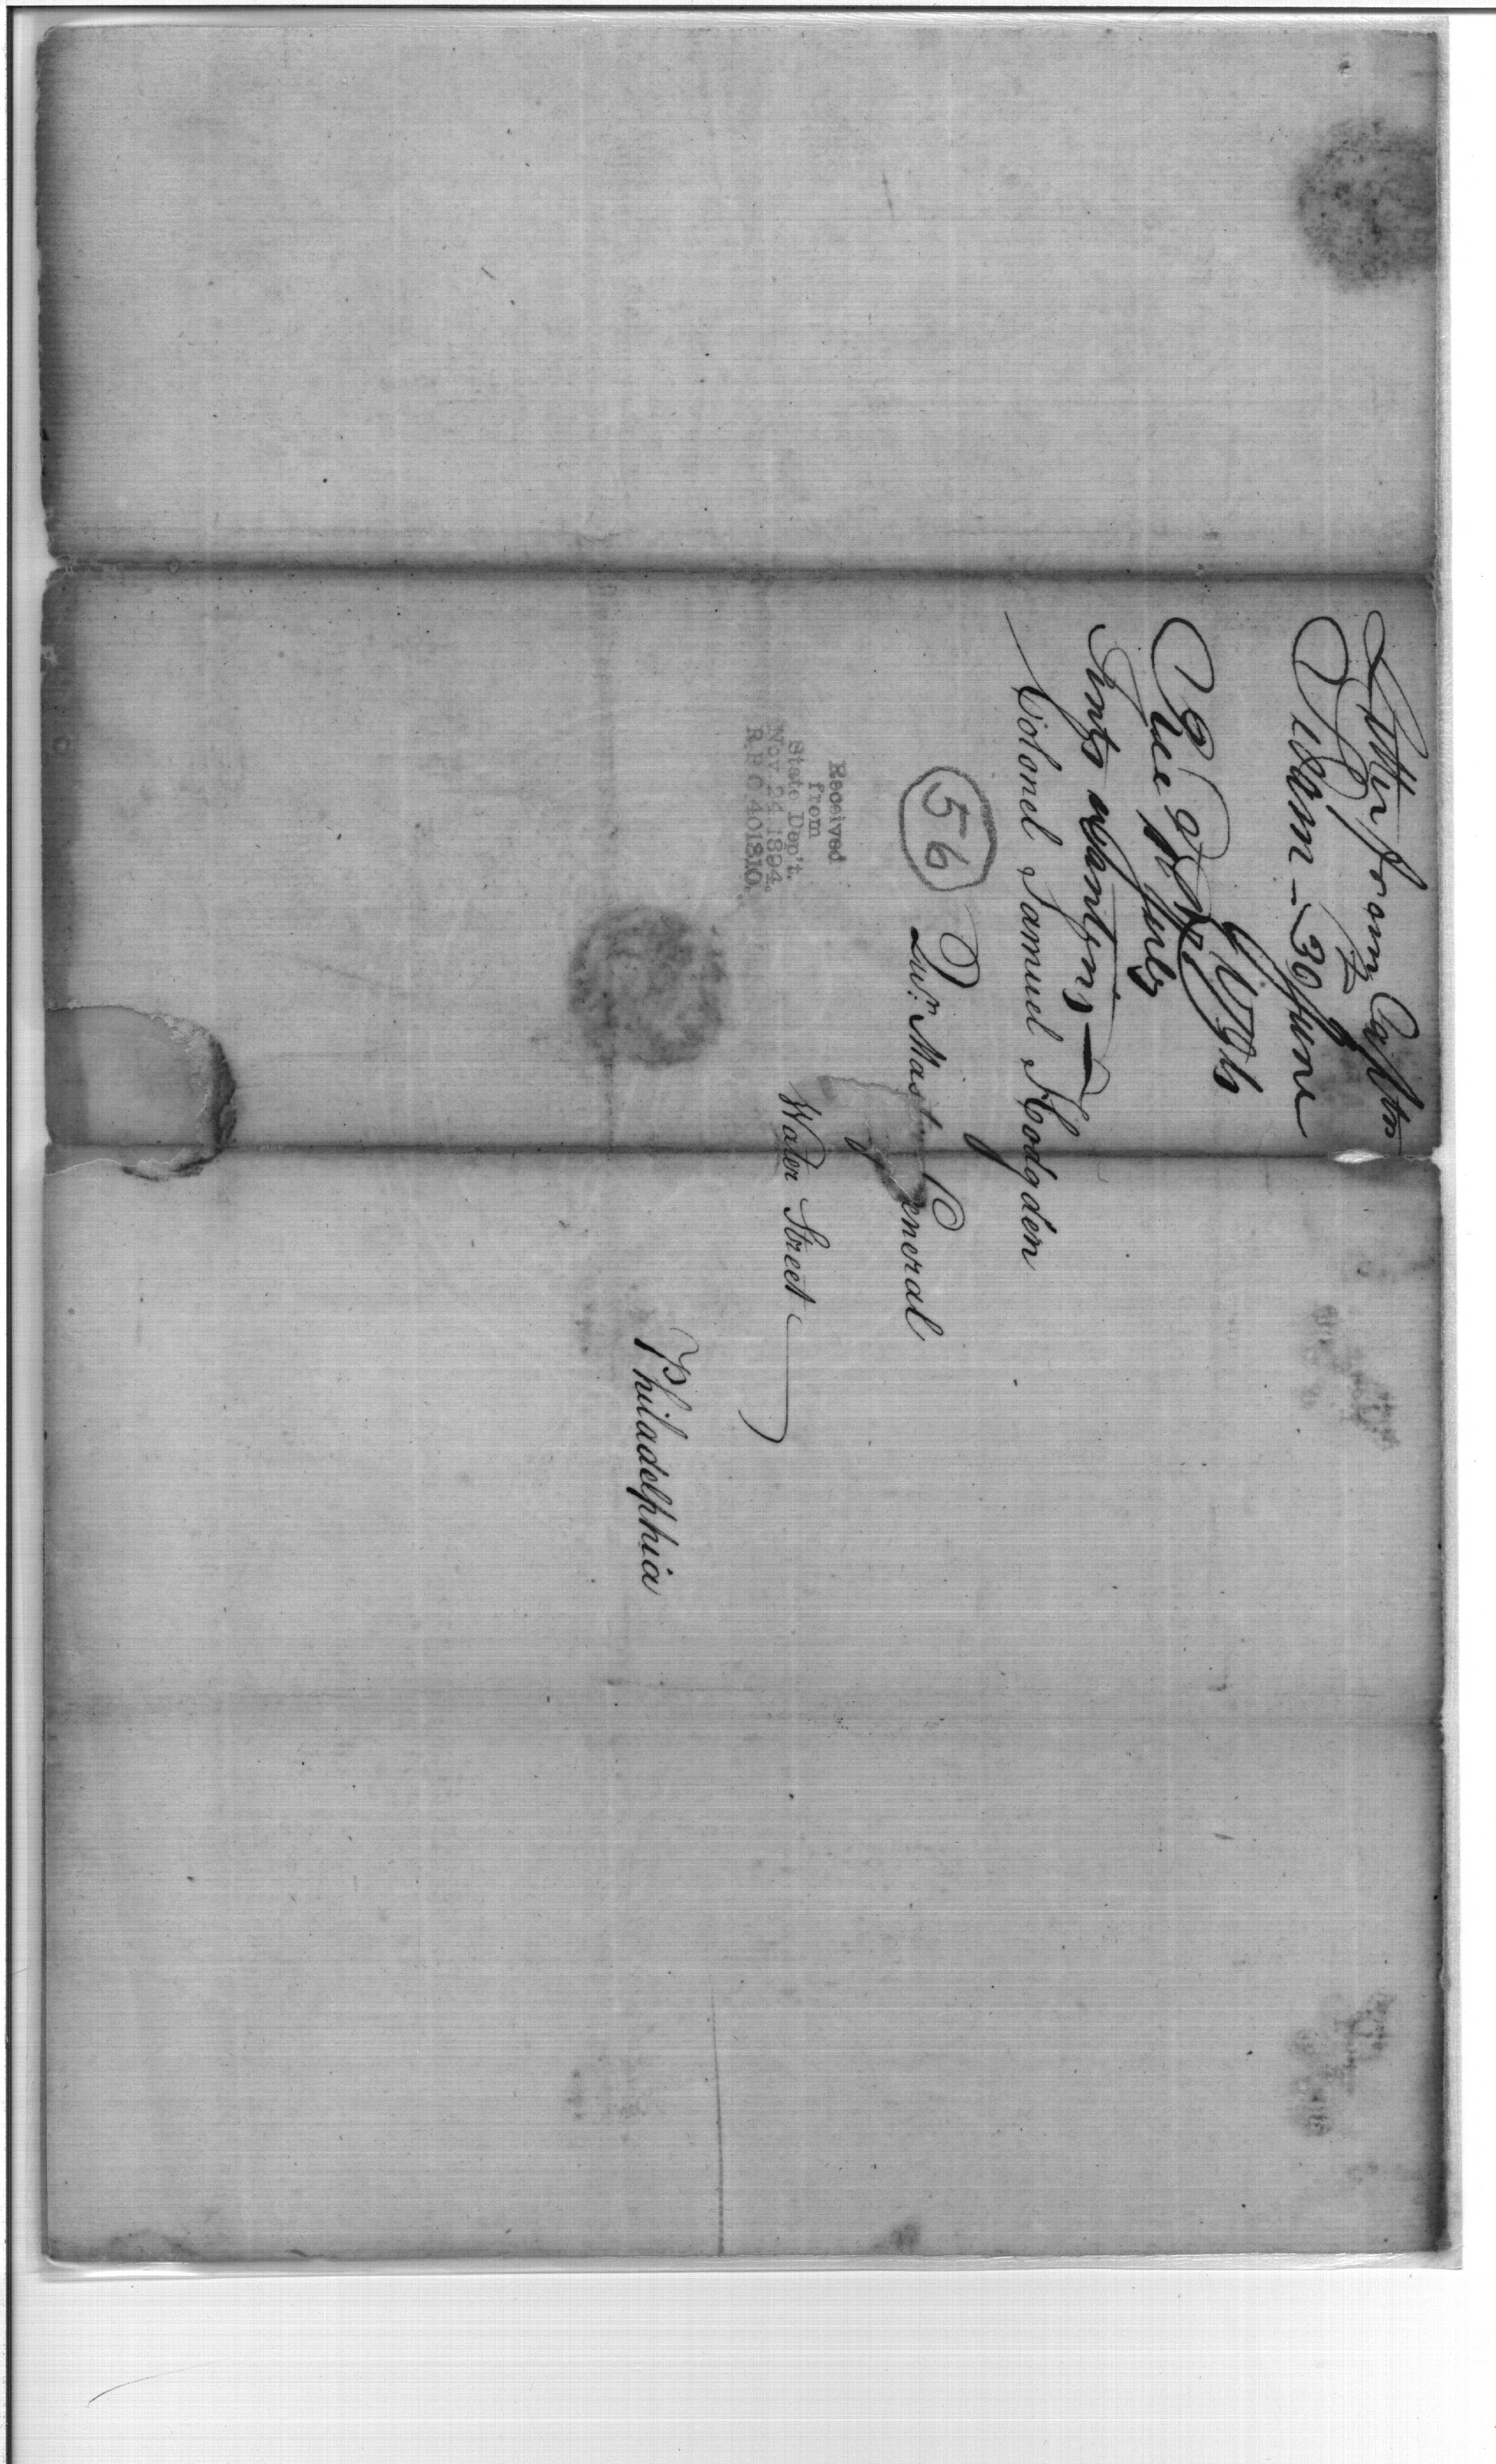 Letter from Captn
30 June
1794
Rec 2d July
Tents wanting
Colonel Samuel Hodgden
Qur. Mast General
56
Water Street
Philadelphia
Received
from
State Dep't.
Nov. 24 1894.
R.&P. 401810.